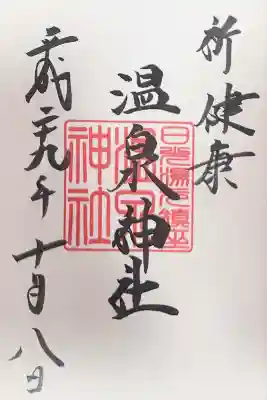 祈健康
日光湯元鎮坐
温泉神社
温泉神社
平成二十九年十月八日